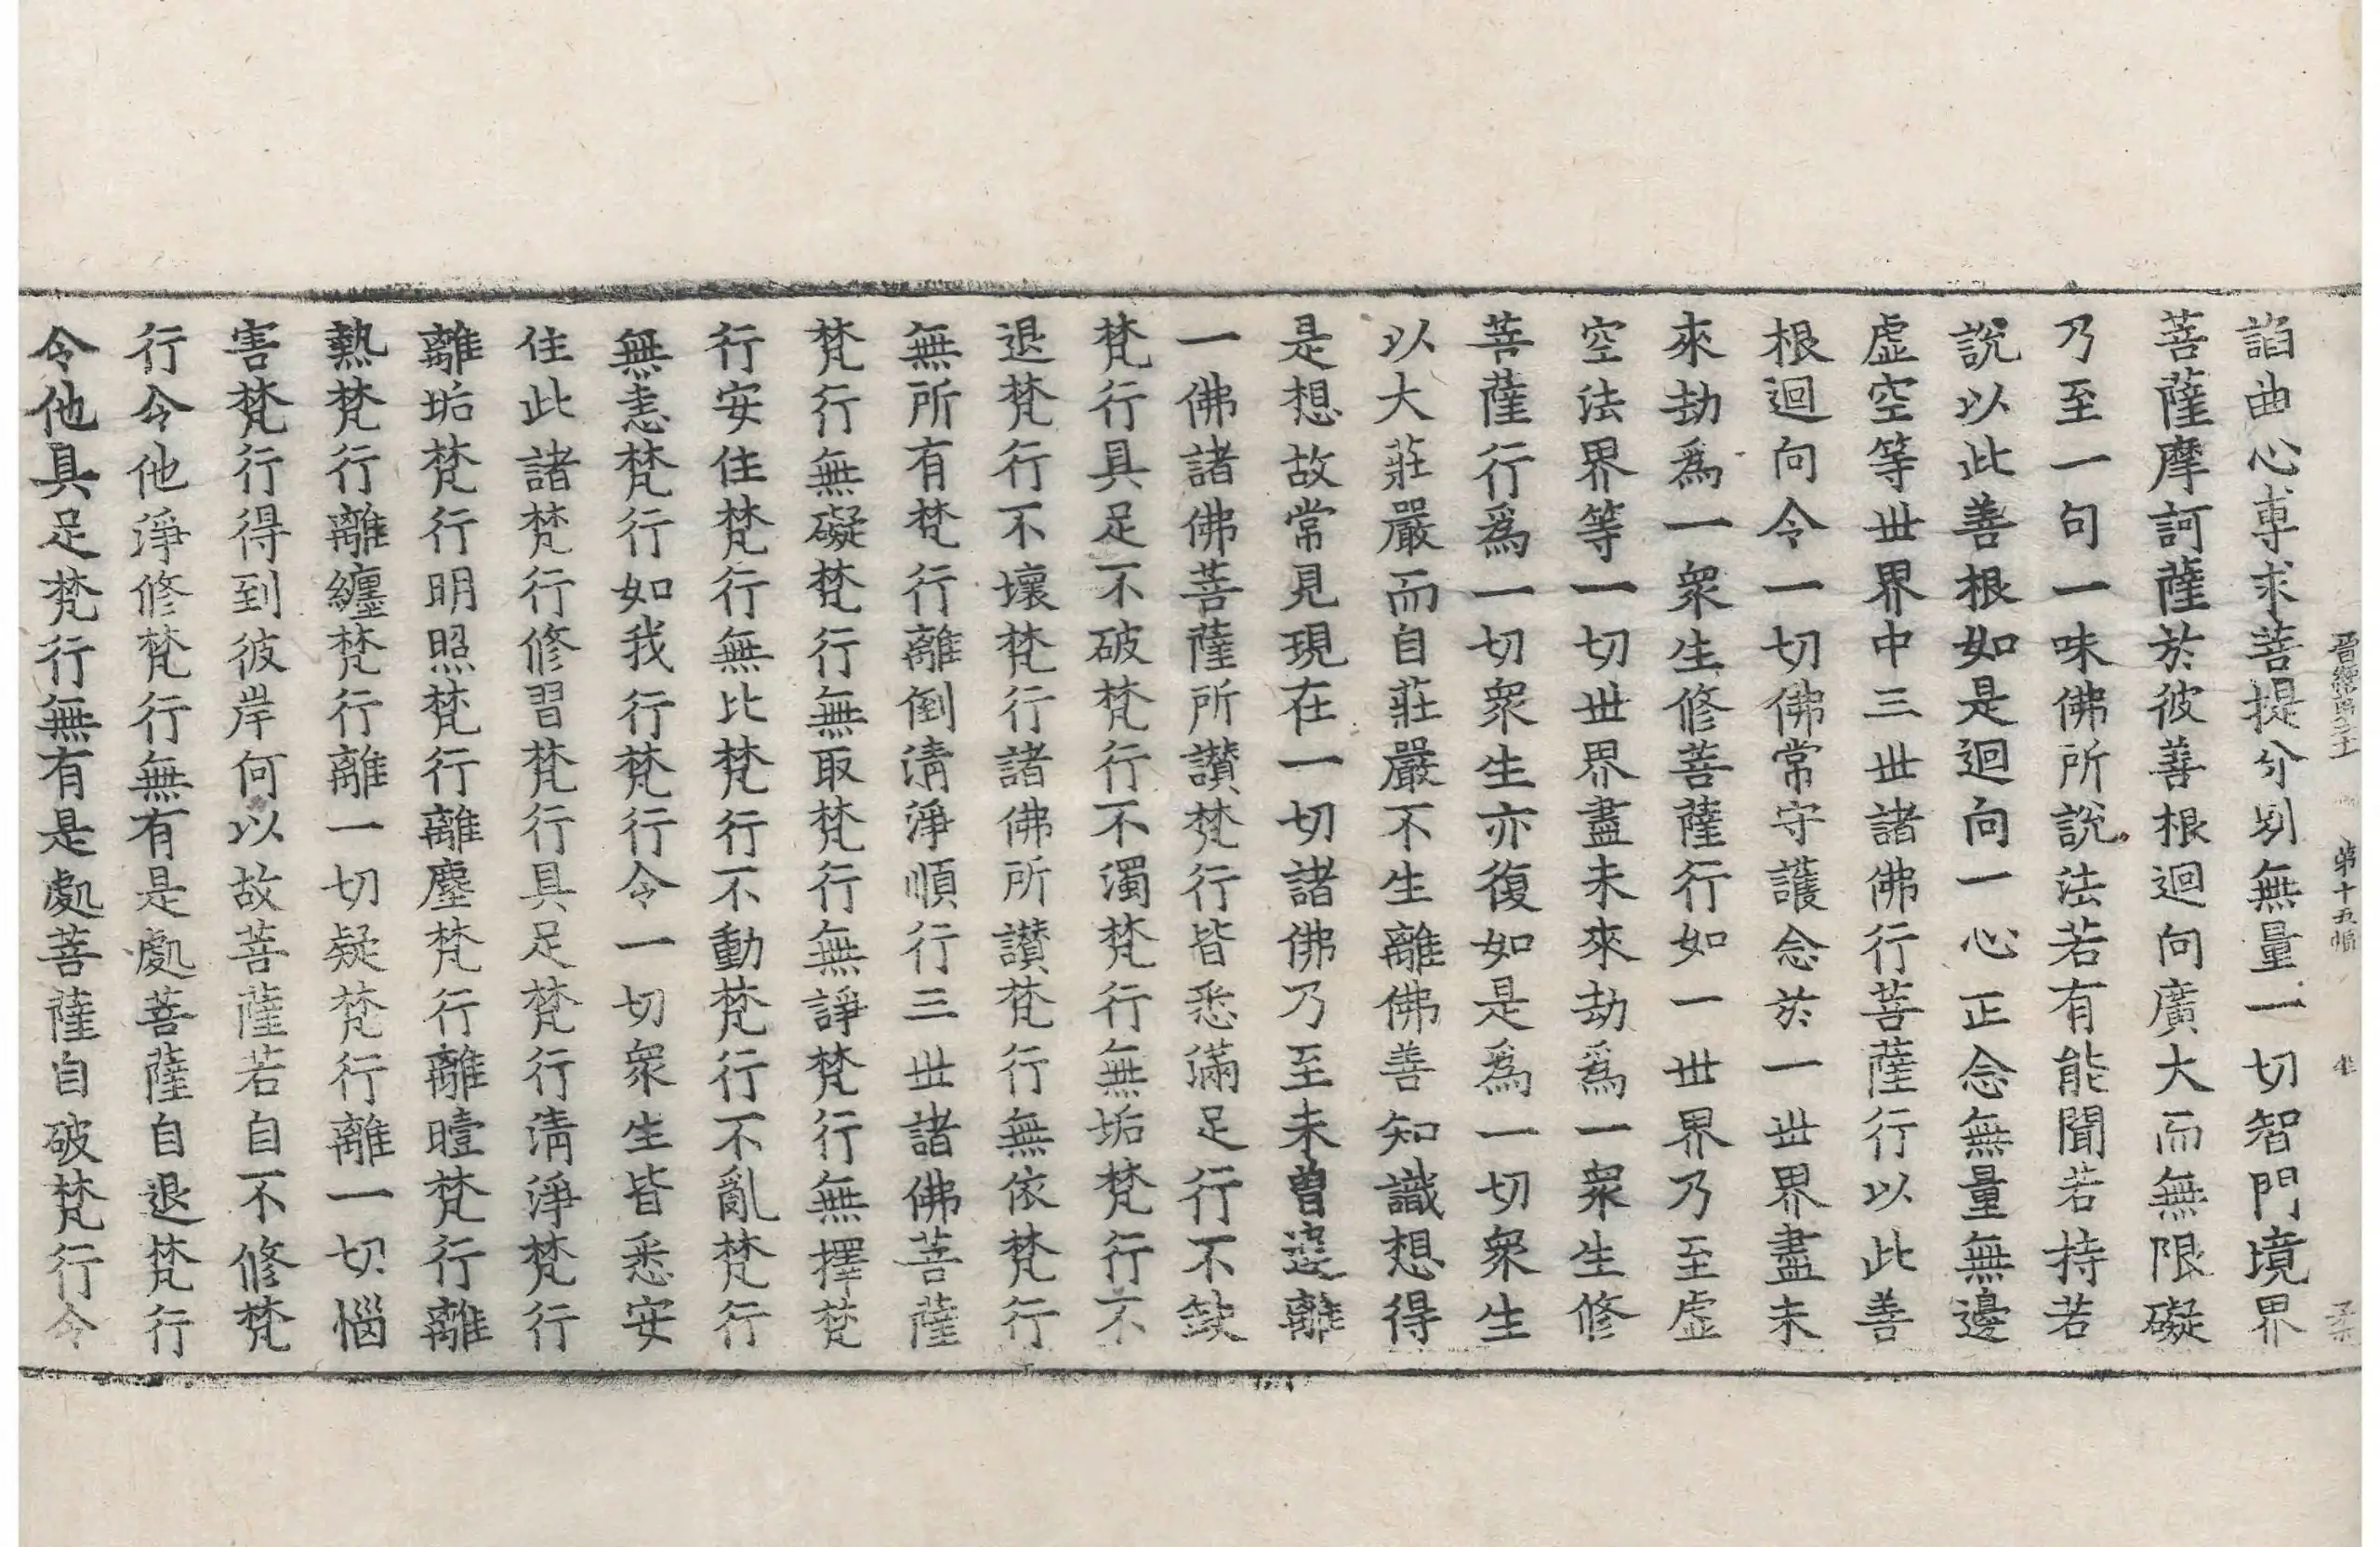 晉經第二十一 第十五幅 柔
諂曲心専求菩提分别無量一切智門境界
菩薩摩訶薩於彼善根迴向廣大而無限礙
乃至一句一味佛所說法若有能聞若持若
說以此善根如是迴向一心正念無量無邊
虛空等世界中三世諸佛行菩薩行以此善
根迴向令一切佛常守護念於一世界盡未
來劫爲一衆生修菩薩行如一世界乃至虛
空法界等一切世界盡未來劫爲一衆生修
菩薩行爲一切衆生亦復如是爲一切衆生
以大莊嚴而自莊嚴不生離佛善知識想得
是想故常見現在一切諸佛乃至未曽遠離
一佛諸佛菩薩所讃梵行皆悉滿足行不缺
梵行具足不破梵行不濁梵行無垢梵行不
退梵行不壞梵行諸佛所讃梵行無依梵行
無所有梵行離倒清淨順行三世諸佛菩薩
梵行無礙梵行無取梵行無諍梵行無擇梵
行安住梵行無比梵行不動梵行不亂梵行
無恚梵行如我行梵行令一切衆生皆悉安
住此諸梵行修習梵行具足梵行清淨梵行
離垢梵行明照梵行離塵梵行離曀梵行離
熱梵行離纏梵行離一切疑梵行離一切惱
害梵行得到彼岸何以故菩薩若自不修梵
行令他淨修梵行無有是處菩薩自退梵行
令他具足梵行無有是處菩薩自破梵行令